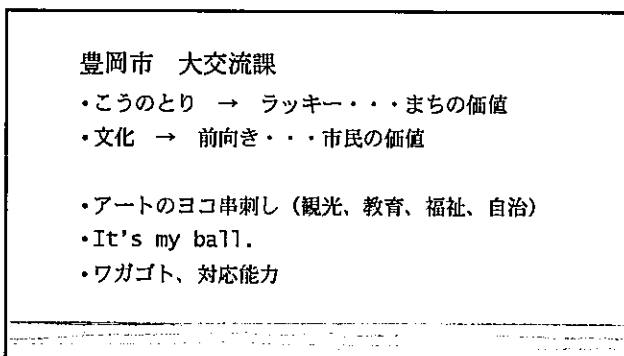 豊岡市　大交流課
・こうのとり　→　ラッキー・・・まちの価値
・文化　→　前向き・・・市民の価値
・アートのヨコ串刺し（観光、教育、福祉、自治）
・It's my ball.
・ワガゴト、対応能力